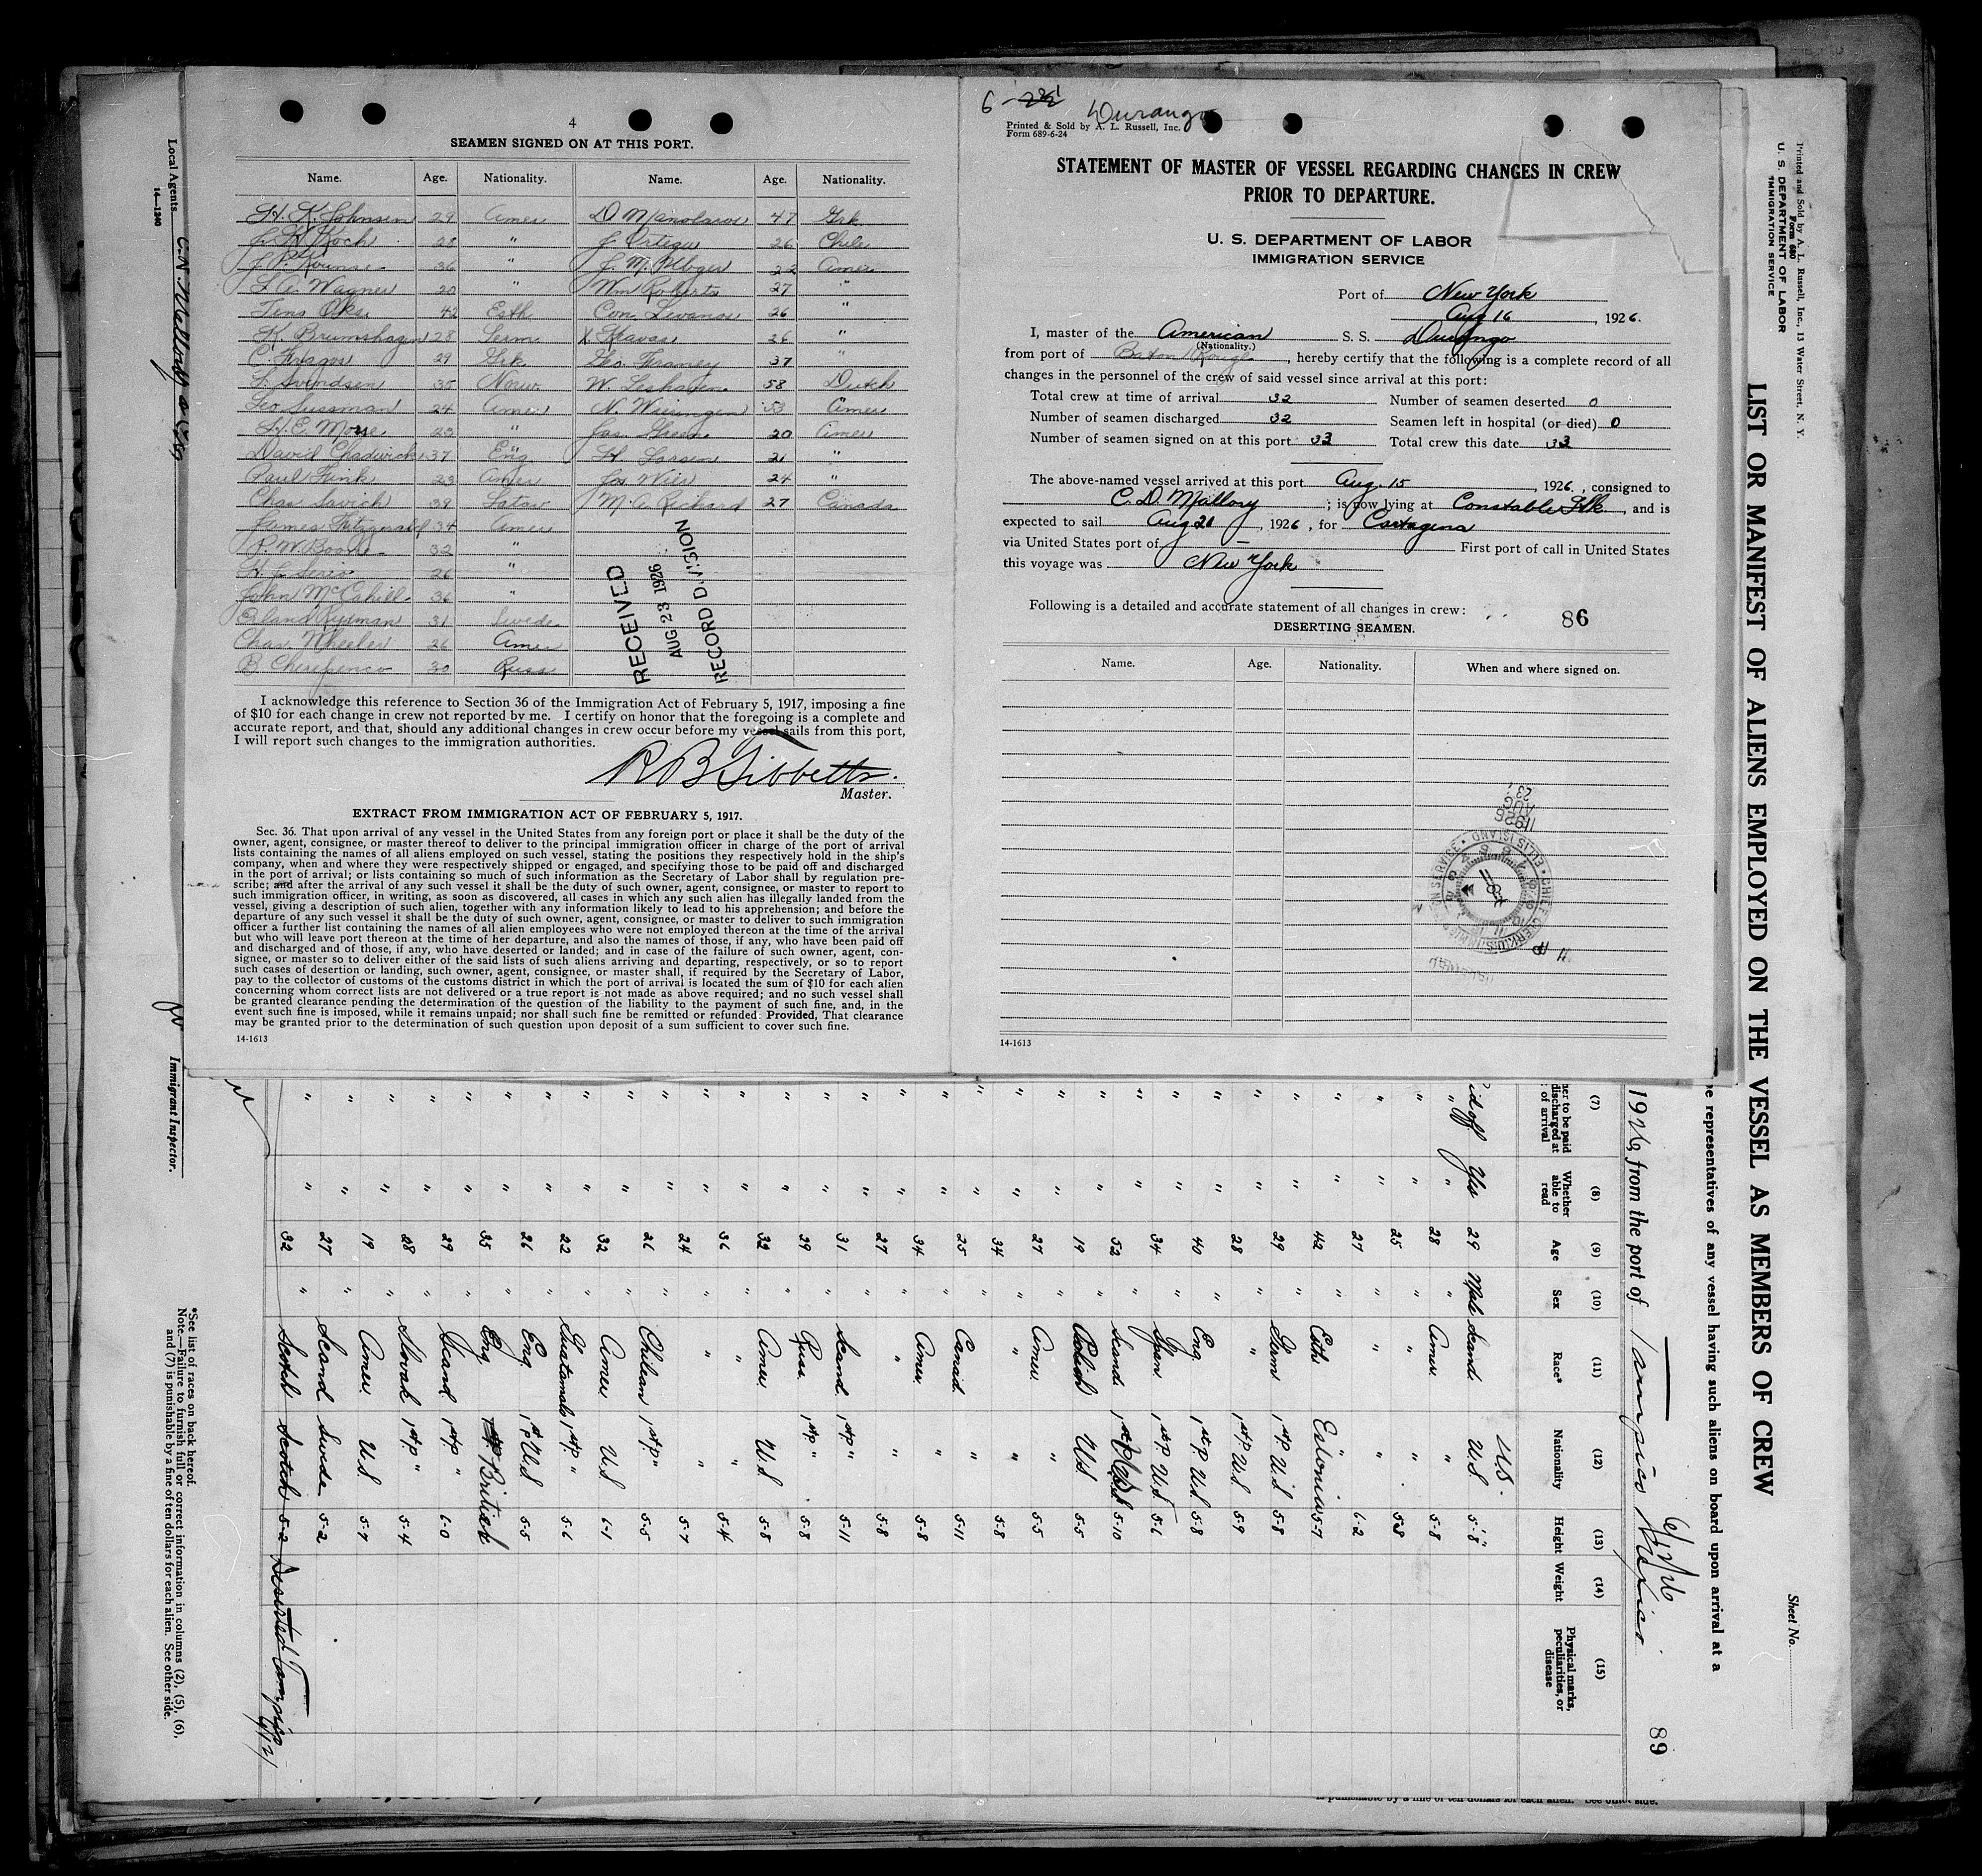 4
SEAMEN SIGNED ON AT THIS PORT.
Name. Age. Nationality. Name. Age. Nationality.
H. K. Johnsen 29 Amer D Manolacos 47 Grk
J. H. Koch 28 " J Ortega 26 Chile
J. P. 36 " J. M. 22 Amer
Wagner 20 Wm Roberts 27 "
Jens Oks 42 Esth Con. Levanos 26 "
K Brumshagen 28 Germ X Kavas 26 "
C. Fragos 29 Grk Geo. Franey 37 "
Svendsen 35 Norw W. 58 Dutch
Leo Sussman 24 Amer N. Wieringen 53 Amer
H. E. Morse 23 " Jas. Green 20 Amer
David Chadwick 37 Eng H Larsen 21 "
Paul Fink 23 Amer Jos Wies 24 "
Chas Savich 39 M. A. Richard 27 Canada
James Fitzgerald 34 Amer
P. W. Boone 32 "
H. L. 26 "
John McCahill 36 "
Erland Rydman 31 Swede
Chas. Wheeler 26 Amer
B Cherepenco 30 Russ
RECEIVED
AUG 23 1926
RECORD DIVISION
I acknowledge this reference to Section 36 of the Immigration Act of February 5, 1917, imposing a fine
of $10 for each change in crew not reported by me. I certify on honor that the foregoing is a complete and
accurate report, and that, should any additional changes in crew occur before my vessel sails from this port,
I will report such changes to the immigration authorities.
R B Tibbetts.
Master.
EXTRACT FROM IMMIGRATION ACT OF FEBRUARY 5, 1917.
Sec. 36. That upon arrival of any vessel in the United States from any foreign port or place it shall be the duty of the
owner, agent, consignee, or master thereof to deliver to the principal immigration officer in charge of the port of arrival
lists containing the names of all aliens employed on such vessel, stating the positions they respectively hold in the ship's
company, when and where they were respectively shipped or engaged, and specifying those to be paid off and discharged
in the port of arrival; or lists containing so much of such information as the Secretary of Labor shall by regulation pre-
scribe; and after the arrival of any such vessel it shall be the duty of such owner, agent, consignee, or master to report to
such immigration officer, in writing, as soon as discovered, all cases in which any such alien has illegally landed from the
vessel, giving a description of such alien, together with any information likely to lead to his apprehension; and before the
departure of any such vessel it shall be the duty of such owner, agent, consignee, or master to deliver to such immigration
officer a further list containing the names of all alien employees who were not employed thereon at the time of the arrival
but who will leave port thereon at the time of her departure, and also the names of those, if any, who have been paid off
and discharged and of those, if any, who have deserted or landed; and in case of the failure of such owner, agent, con-
signee, or master so to deliver either of the said lists of such aliens arriving and departing, respectively, or so to report
such cases of desertion or landing, such owner, agent, consignee, or master shall, if required by the Secretary of Labor,
pay to the collector of customs of the customs district in which the port of arrival is located the sum of $10 for each alien
concerning whom correct lists are not delivered or a true report is not made as above required; and no such vessel shall
be granted clearance pending the determination of the question of the liability to the payment of such fine, and, in the
event such fine is imposed, while it remains unpaid; nor shall such fine be remitted or refunded: Provided, That clearance
may be granted prior to the determination of such question upon deposit of a sum sufficient to cover such fine.
14-1613
6 Durango
Printed & Sold by A. L. Russell, Inc.
Form 689-6-24
STATEMENT OF MASTER OF VESSEL REGARDING CHANGES IN CREW
PRIOR TO DEPARTURE.
U. S. DEPARTMENT OF LABOR
IMMIGRATION SERVICE
Port of New York
Aug 16, 1926.
I, master of the American S. S. Durango
(Nationality.)
from port of Baton Rouge, hereby certify that the following is a complete record of all
changes in the personnel of the crew of said vessel since arrival at this port:
Total crew at time of arrival 32 Number of seamen deserted 0
Number of seamen discharged 32 Seamen left in hospital (or died) 0
Number of seamen signed on at this port 33 Total crew this date 33
The above-named vessel arrived at this port Aug. 15, 1926, consigned to
C. D. Mallory; is now lying at Constable Hk, and is
expected to sail Aug 21, 1926, for Cartagena
via United States port of — First port of call in United States
this voyage was New York
Following is a detailed and accurate statement of all changes in crew:
86
DESERTING SEAMEN.
Name. Age. Nationality. When and where signed on.
1926
AUG
23
CHIEF CLERK U.S. IMMIGRATION SERVICE ELLIS ISLAND
14-1613
Local Agents C. D. Mallory & Co
14—1240
Immigrant Inspector.
Printed and Sold by A. L. Russell, Inc., 13 Water Street, N. Y.
Form 680
U. S. DEPARTMENT OF LABOR
IMMIGRATION SERVICE
Sheet No.
LIST OR MANIFEST OF ALIENS EMPLOYED ON THE VESSEL AS MEMBERS OF CREW
he representatives of any vessel having such aliens on board upon arrival at a
1926, from the port of Tampico Mexico
89
(7) (8) (9) (10) (11) (12) (13) (14) (15)
her to be paid discharged at of arrival
Whether able to read
Age
Sex
Race*
Nationality
Height
Weight
Physical marks, peculiarities, or disease
U.S.
Paid off Yes 29 Male Scand U.S. 5-8
" " 28 " Amer " 5-8
" " 25 " " " 5-8
" " 27 " " " 6-2
" " 42 " Esth Estonia 5-7
" " 29 " Germ 1st P. U.S 5-8
" " 28 " " 1st P. U.S 5-9
" " 40 " Eng 1st P. U.S 5-8
" " 34 " Span 1st P. U.S 5-6
" " 52 " Scand 1st P 5-10
" " 19 " Polish U.S. 5-5
" " 27 " Amer " 5-5
" " 34 " " " 5-8
" " 25 " Canad " 5-11
" " 34 " Amer " 5-8
" " 27 " " " 5-8
" " 31 " Scand 1st P. " 5-11
" " 29 " Russ 1st P. " 5-8
" " 32 " Amer U.S 5-8
" " 36 " " " 5-4
" " 24 " " " 5-7
" " 26 " Chilean 1st P. " 5-5
" " 32 " Amer U.S 6-1
" " 22 " Guatamala 1st P. " 5-6
" " 26 " Eng 1st P. U.S 5-5
" " 35 " Eng British
" " 29 " Scand 1st P. " 6-0
" " 28 " Slovak 1st P. " 5-4
" " 19 " Amer U.S 5-7
" " 27 " Scand Swede 5-2
" " 32 " Scotch Scotch 5-2 Deserted Tampico
*See list of races on back hereof.
Note.—Failure to furnish full or correct information in columns (2), (5), (6),
and (7) is punishable by a fine of ten dollars for each alien. See other side.
is punishable by a fine of ten dollars for each alien. See other side.